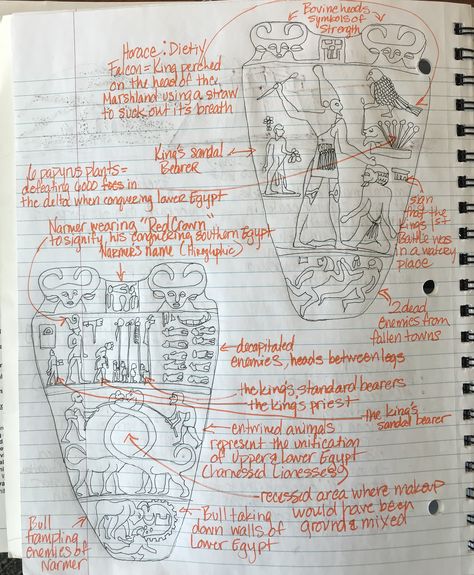 Bovine heads
symbols of
Strength
Horace : Diety
Falcon = King perched
on the head of the
Marshland using a straw
to suck out it's breath
King's sandal
Bearer
6 papyrus plants =
defeating 6000 foes in
the delta when conquering lower Egypt
sign
that the
King's 1st
Battle was
in a watery
place
Narmer wearing "Red Crown"
to signify his conquering Southern Egypt
Narmer's name (Hieroglyphic)
2 dead
enemies from
fallen towns
decapitated
enemies, heads between legs
the king's standard bearers
the king's priest
the king's
sandal bearer
entwined animals
represent the unification
of upper & lower Egypt
(harnessed Lionesses)
recessed area where makeup
would have been
ground & mixed
Bull
trampling
enemies of
Narmer
Bull taking
down walls of
Lower Egypt